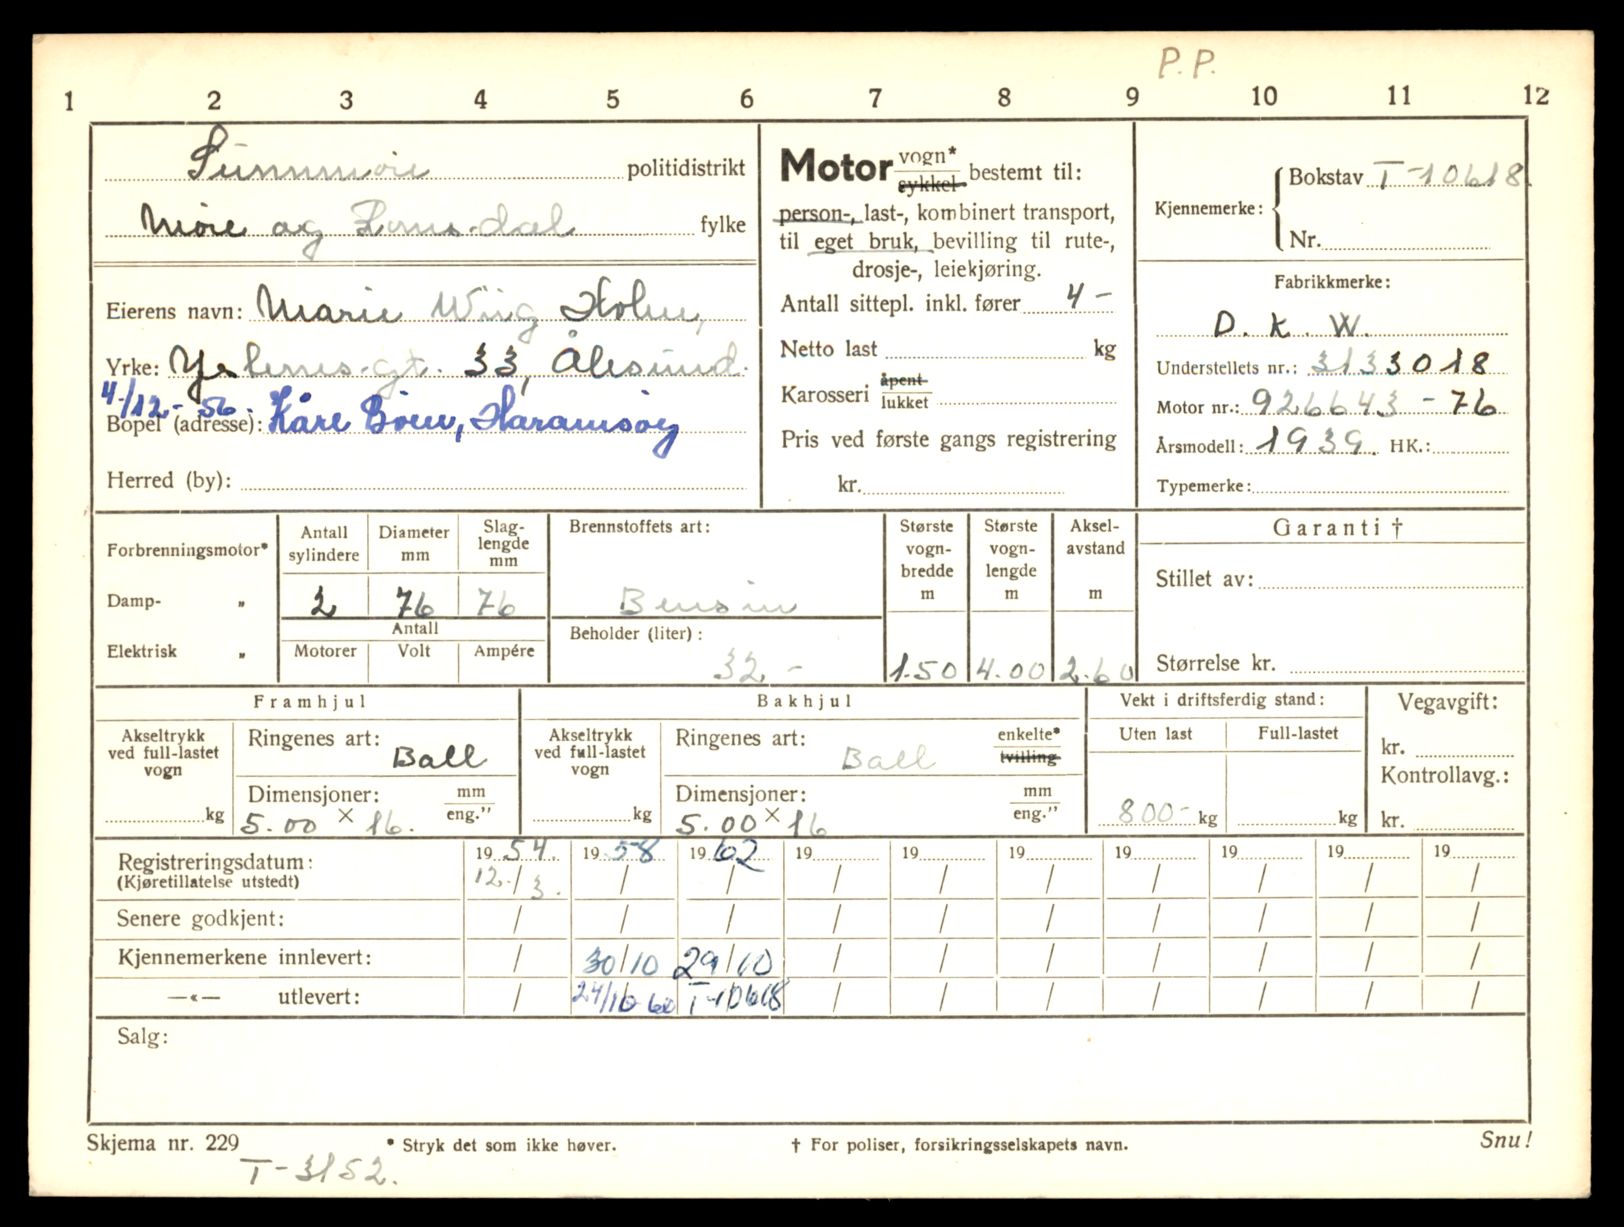 P. P.
1 2 3 4 5 6 7 8 9 10 11 12
Sunnmøre politidistrikt
Møre og Romsdal fylke
Eierens navn: Marie Wiig Holm,
Yrke: gt. 33, Ålesund.
4/12-56.
Bopel (adresse): Kåre Bøen, Haramsøy
Herred (by):
Motor vogn* sykkel bestemt til:
person-, last-, kombinert transport,
til eget bruk, bevilling til rute-,
drosje-, leiekjøring.
Antall sittepl. inkl. fører 4 -
Netto last kg
Karosseri åpent lukket
Pris ved første gangs registrering
kr.
Kjennemerke: Bokstav T-10618.
Nr.
Fabrikkmerke:
D. K. W.
Understellets nr.: 3133018
Motor nr.: 926643 - 76
Årsmodell: 1939. HK.:
Typemerke:
Forbrenningsmotor*
Damp- „
Elektrisk „
Antall sylindere
Diameter mm
Slag-lengde mm
2 76 76
Antall
Motorer Volt Ampére
Brennstoffets art:
Bensin
Beholder (liter):
32 -
Største vogn-bredde m
Største vogn-lengde m
Aksel-avstand m
1.50 4.00 2.60
Garanti †
Stillet av:
Størrelse kr.
Framhjul
Akseltrykk ved full-lastet vogn
kg
Ringenes art: Ball
Dimensjoner: mm eng.”
5.00 × 16.
Bakhjul
Akseltrykk ved full-lastet vogn
kg
Ringenes art: Ball enkelte* tvilling
Dimensjoner: mm eng.”
5.00 × 16
Vekt i driftsferdig stand:
Uten last Full-lastet
800- kg kg
Vegavgift:
kr.
Kontrollavg.:
kr.
Registreringsdatum: 19 54. 19 58 19 62 19 19 19 19 19 19 19
(Kjøretillatelse utstedt) 12./3. / / / / / / / / /
Senere godkjent: / / / / / / / / / /
Kjennemerkene innlevert: / 30/10 29/10 / / / / / / /
—«— utlevert: / 24/10-60 T-10618 / / / / / / /
Salg:
Skjema nr. 229 * Stryk det som ikke høver. † For poliser, forsikringsselskapets navn. Snu!
T-3152.